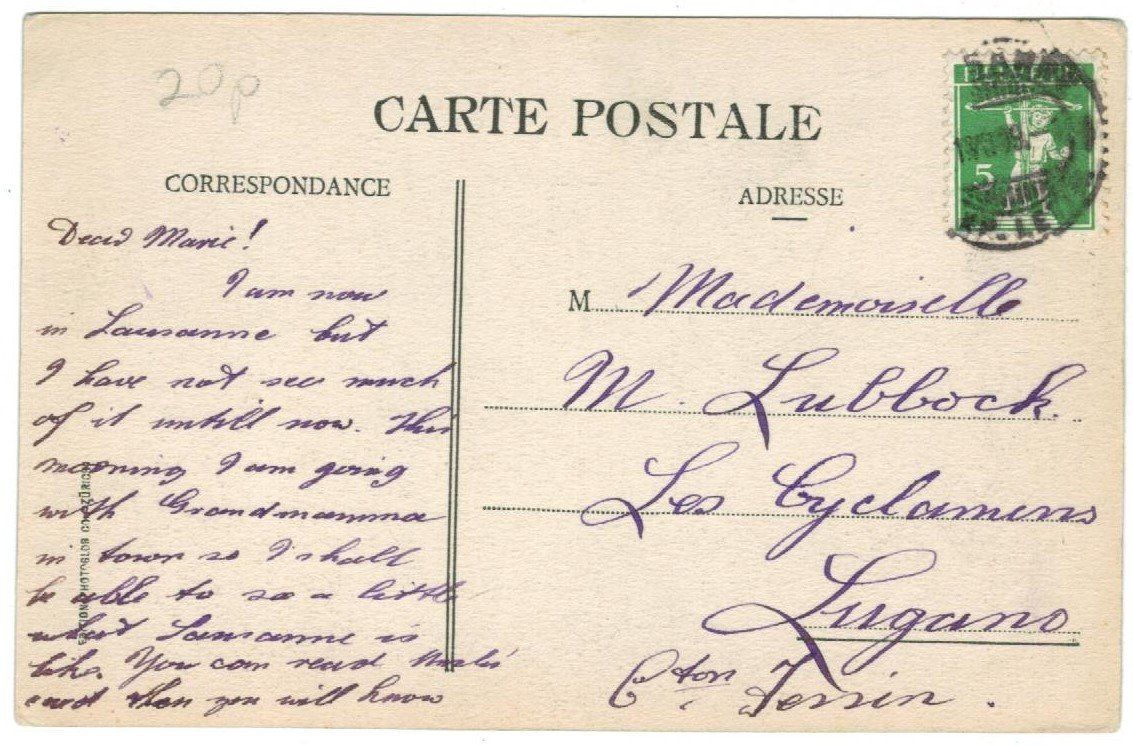 20p
CARTE POSTALE
CORRESPONDANCE
ADRESSE
5
Dear Marie!
I am now
in Lausanne but
I have not see much
of it untill now. This
morning I am going
with Grandmamma
in town so I shall
be able to see a little
what Lausanne is
like. You can read
card then you will know
M Mademoiselle
M. Lubbock.
Les Cyclamens
Lugano
Cton Tessin.